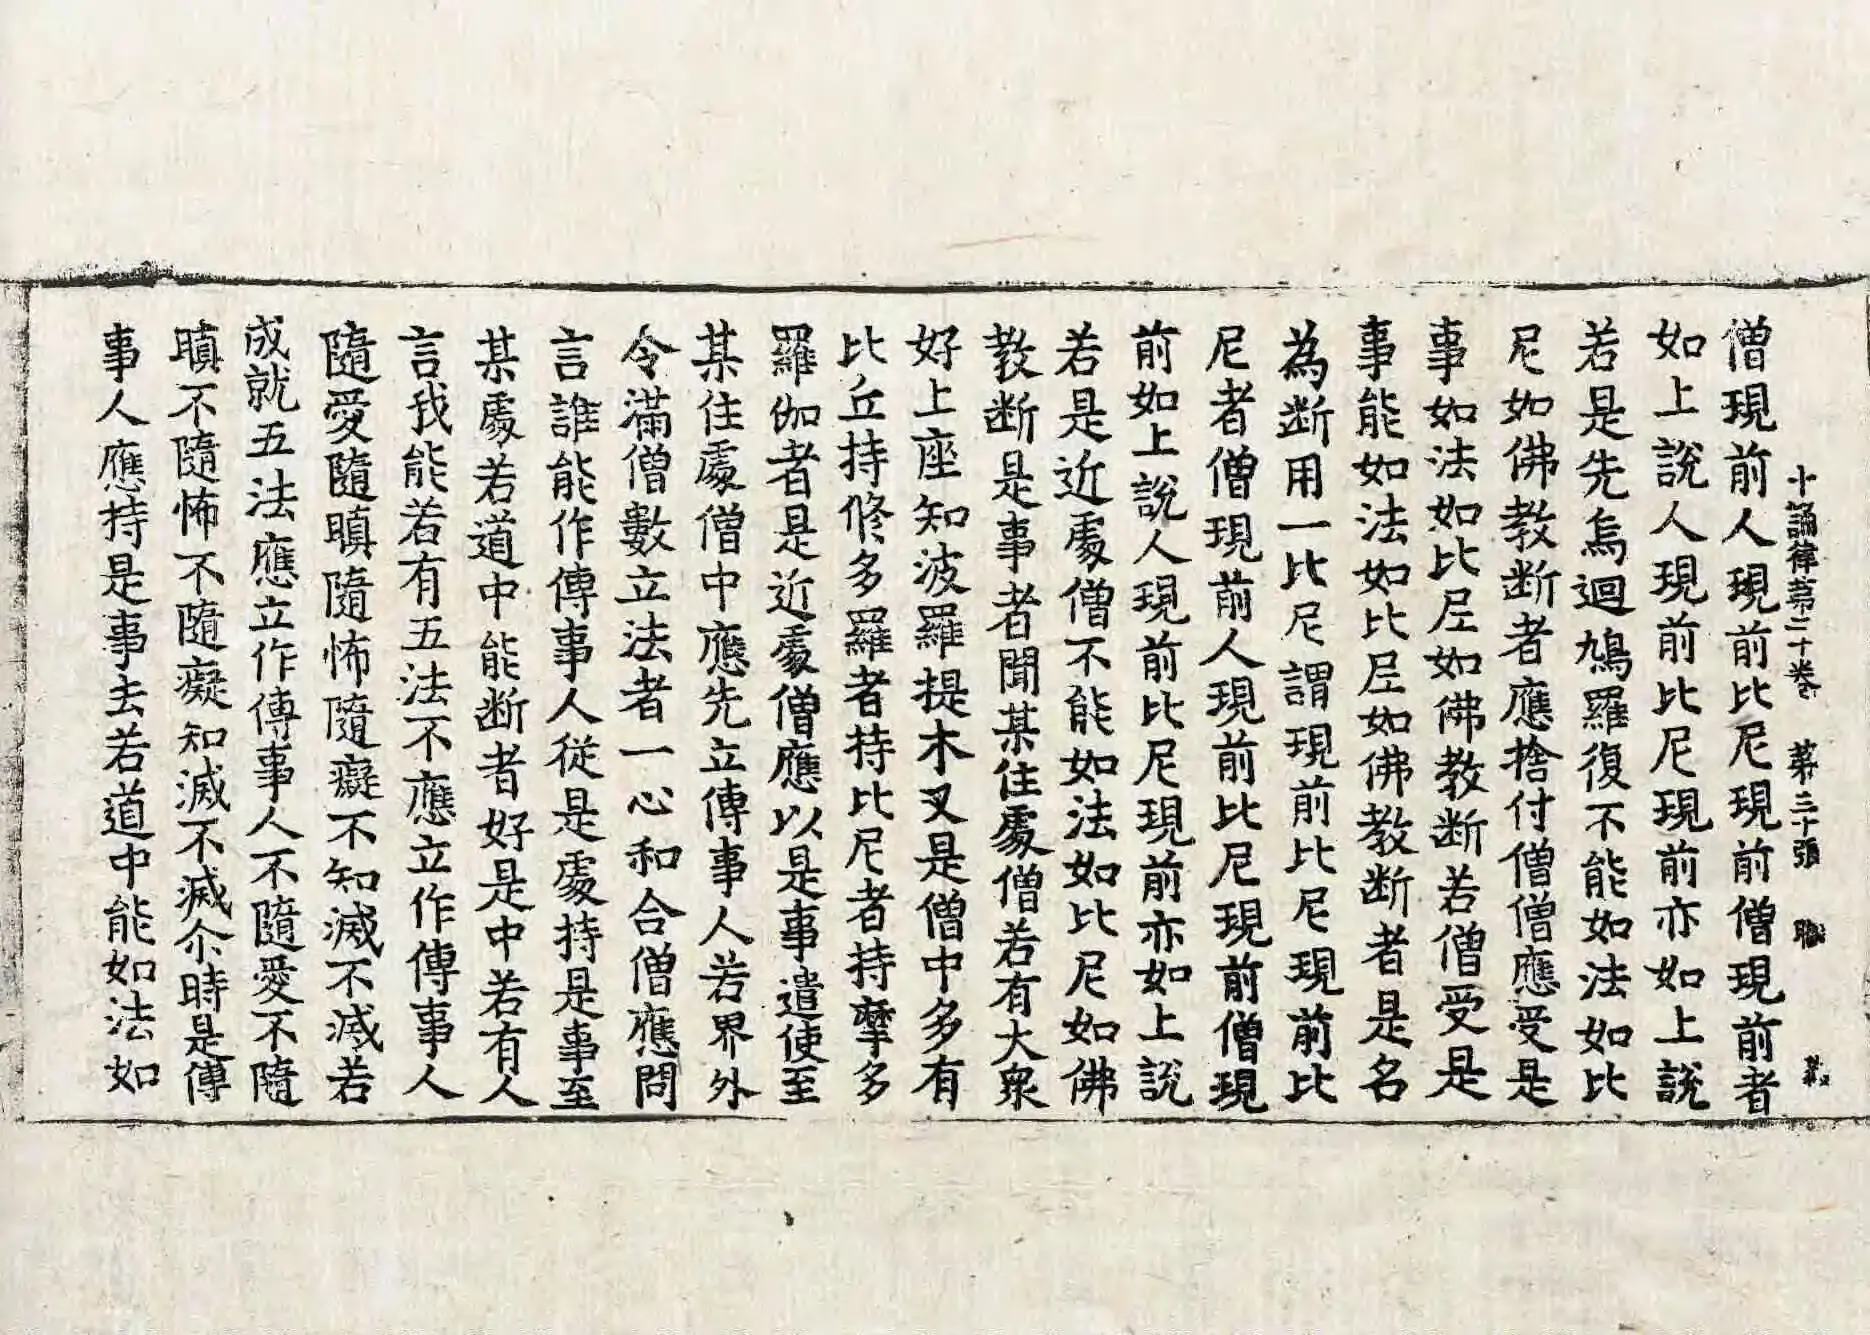 十誦律苐二十卷　苐三十張　職
僧現前人現前比尼現前僧現前者
如上說人現前比尼現前亦如上說
若是先烏迴鳩羅復不能如法如比
尼如佛教断者應捨付僧僧應受是
事如法如比尼如佛教断若僧受是
事能如法如比尼如佛教断者是名
為断用一比尼謂現前比尼現前比
尼者僧現前人現前比尼現前僧現
前如上說人現前比尼現前亦如上說
若是近處僧不能如法如比尼如佛
教断是事者聞某住處僧若有大衆
好上座知波羅提木叉是僧中多有
比丘持修多羅者持比尼者持摩多
羅伽者是近處僧應以是事遣使至
某住處僧中應先立傳事人若界外
令滿僧數立法者一心和合僧應問
言誰能作傳事人従是處持是事至
某處若道中能断者好是中若有人
言我能若有五法不應立作傳事人
隨愛隨瞋隨怖隨癡不知滅不滅若
成就五法應立作傳事人不隨愛不隨
瞋不隨怖不隨癡知滅不滅尒時是傳
事人應持是事去若道中能如法如